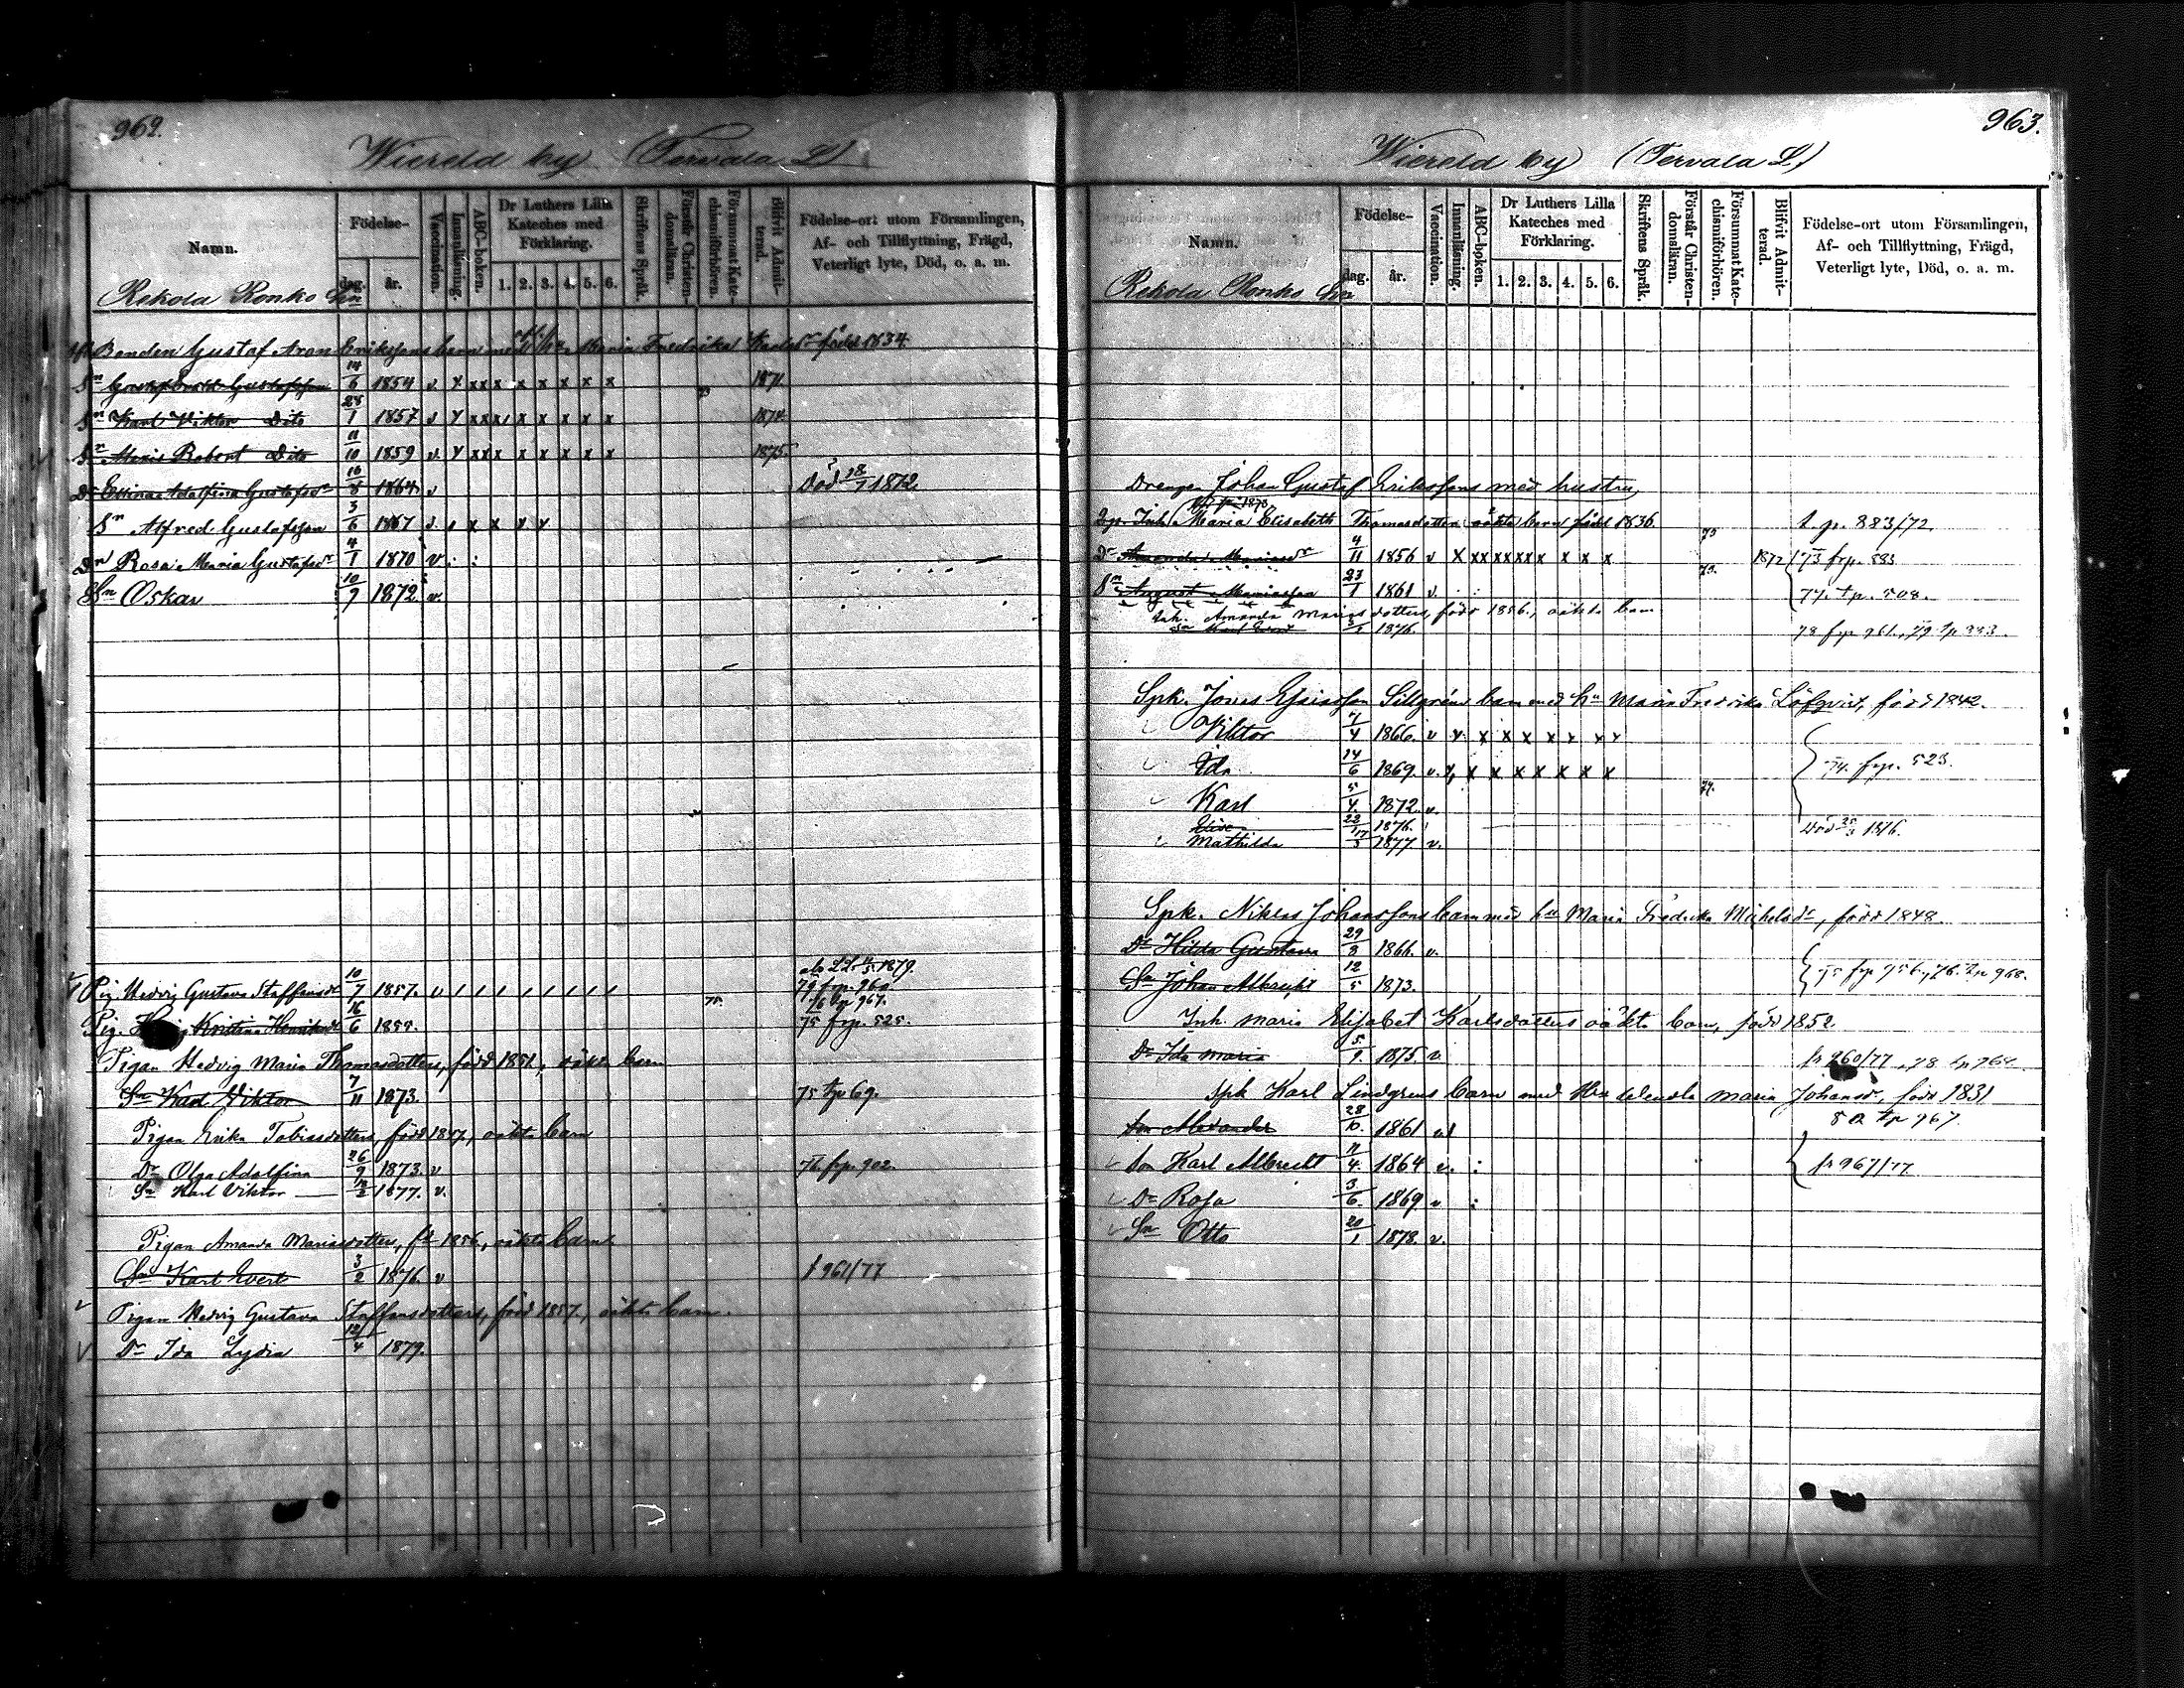 962.
Wiereld by (Tervala L)
Namn.
Födelse-
dag. år.
Vaccination.
Innanläsning.
ABC-boken.
Dr Luthers Lilla Kateches med Förklaring.
1. 2. 3. 4. 5. 6.
Skriftens Språk.
Förstår Christendomsläran.
Försummat Katechismiförhören.
Blifvit Admitterad.
Födelse-ort utom Församlingen, Af- och Tillflyttning, Frägd, Veterligt lyte, Död, o. a. m.
Rekola Ronko
Bonden Gustaf Aron Erikssons barn med Maria Fredrika född 1834
Sn Gustafsson 14/6 1854 v x x x x x x x x x 1871.
Sn Karl Viktor Dito 28/1 1857 v x x x x x x x x 1874.
Sn Alexis Robert Dito 11/10 1859 v. x x x x x x x x x 1875.
Adolfina Gustafsdr 16/8 1864. v Död 28/7 1872.
Sn Alfred Gustafsson 3/6 1867 v. x x x x
Dr Rosa Maria Gustafsdr 4/1 1870 v
Sn Oskar 10/9 1872 v.
Pig. Hedvig Gustava Staffansdr 10/7 1857. v 1879. 79 frp. 960 tp 967.
Pig. Kristina 16/6 1855. 75 frp. 525.
Pigan Hedvig Maria Thomasdotters, född 1851, oäkta barn
Sn Karl Viktor 7/11 1873. 75 tp 69.
Pigan Erika Tobiasdotters, född 1847, oäkta barn
Dr Olga Adolfina 26/9 1873. v 76. frp. 902.
Sn Karl Viktor 1877. v.
Pigan Amanda Mariasdotters, fd 1856, oäkta barn
Sn Karl Evert 3/2 1876. v 961/77
Pigan Hedvig Gustava Staffansdotters, född 1857, oäkta barn.
Dr Ida Lydia 12/4 1879.
963.
Wiereld by (Tervala L.)
Namn.
Födelse-
dag. år.
Vaccination.
Innanläsning.
ABC-boken.
Dr Luthers Lilla Kateches med Förklaring.
1. 2. 3. 4. 5. 6.
Skriftens Språk.
Förstår Christendomsläran.
Försummat Katechismiförhören.
Blifvit Admitterad.
Födelse-ort utom Församlingen, Af- och Tillflyttning, Frägd, Veterligt lyte, Död, o. a. m.
Rekola Ronko
Drengen Johan Gustaf Erikssons med hustru,
Inh. Maria Elisabeth Thomasdotters oäkta barn född 1836. 73 t. p. 883/72.
Dr Amanda Mariasdr 4/11 1856 v x x x x x x x x x x 73. 1872 73 frp. 883
Sn August Mariasson 23/1 1861 v. 77. tp. 508.
Inh. Amanda Mariasdotters, född 1856, oäkta barn
Sn Karl Evert 1876. 78 frp 961., 79 tp 883.
Spk. Jonas Sillgréns barn med hu Maria Fredrika Löfqvist, född 1842.
Viktor 7/4 1866. v x x x x x x x x
Ida 14/6 1869. v. x x x x x x x x 74. frp. 523.
Karl 5/4 1872 v. 74.
1876. Död 1876.
Mathilda 17/3 1877 v.
Spk. Niklas Johanssons barn med hu Maria Fredrika Michelsdr, född 1848.
Dr Hilda Gustava 29/8 1866. v.
Sn Johan Albrecht 12/5 1873. 75 frp 956, 76. tp 968.
Inh. Maria Elisabet Karlsdotters oäkta barn, född 1852.
Dr Ida Maria 5/1 1875. v fr 960/77, 78 tp 964
Spk Karl Lindgrens barn med Hu Helendla Maria Johansdr, född 1831
Son Alexander 28/10 1861 80 tp 967
Son Karl Albrecht 11/4 1864 v. fr 967/77.
Dr Rosa 3/6 1869 v
Sn Otto 20/1 1878. v.